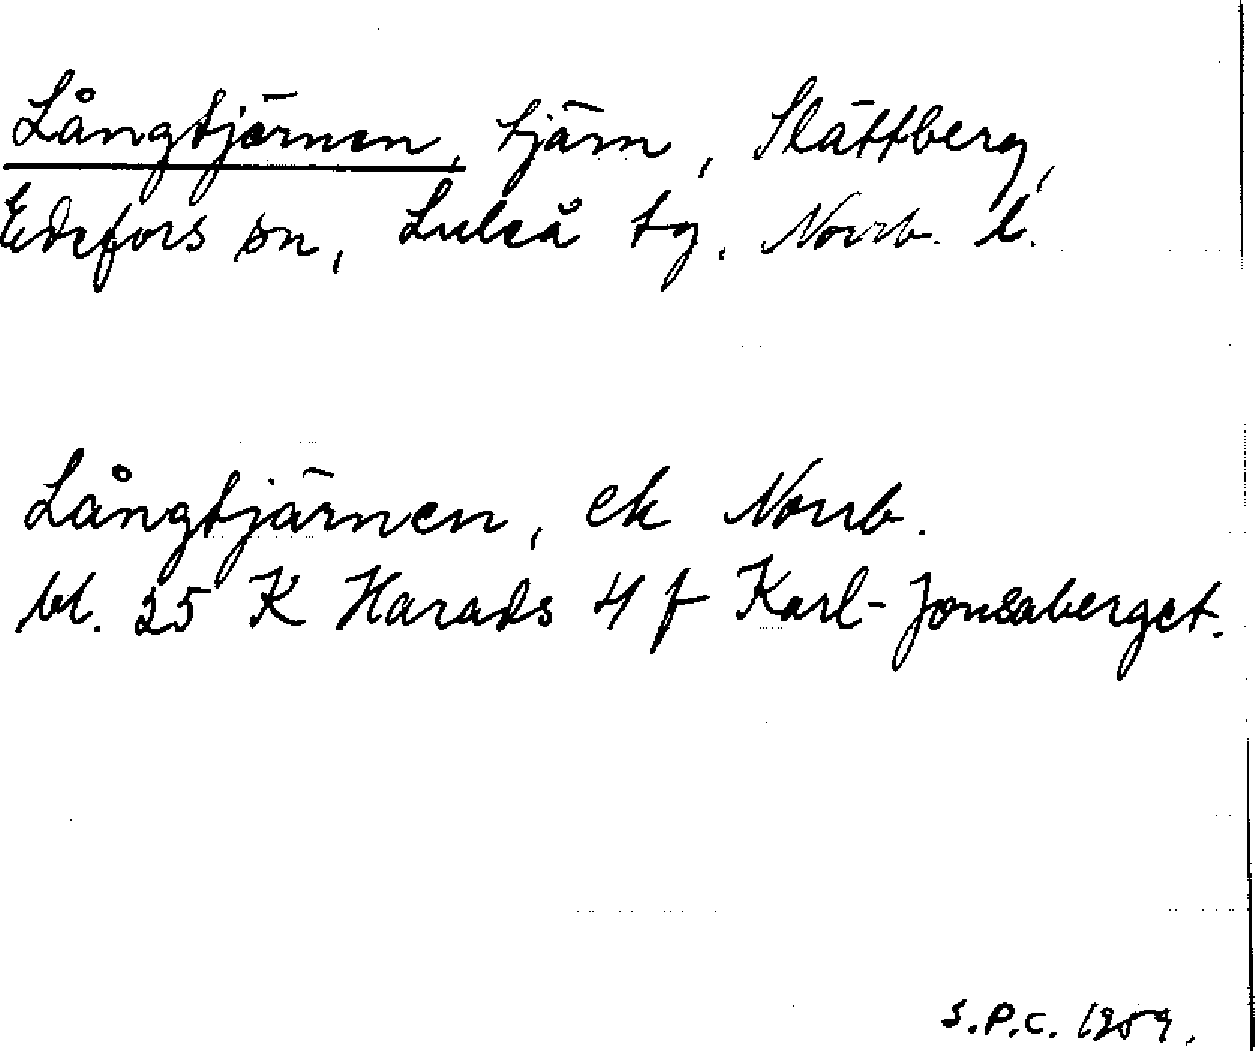 Långtjärnen, tjärn, Slättberg,
Edefors sn, Luleå tg. Norrb. l.
Långtjärnen, ek Norrb.
bl. 25 K Harads 4 f Karl-Jonsaberget.
S.P.C. 1959.